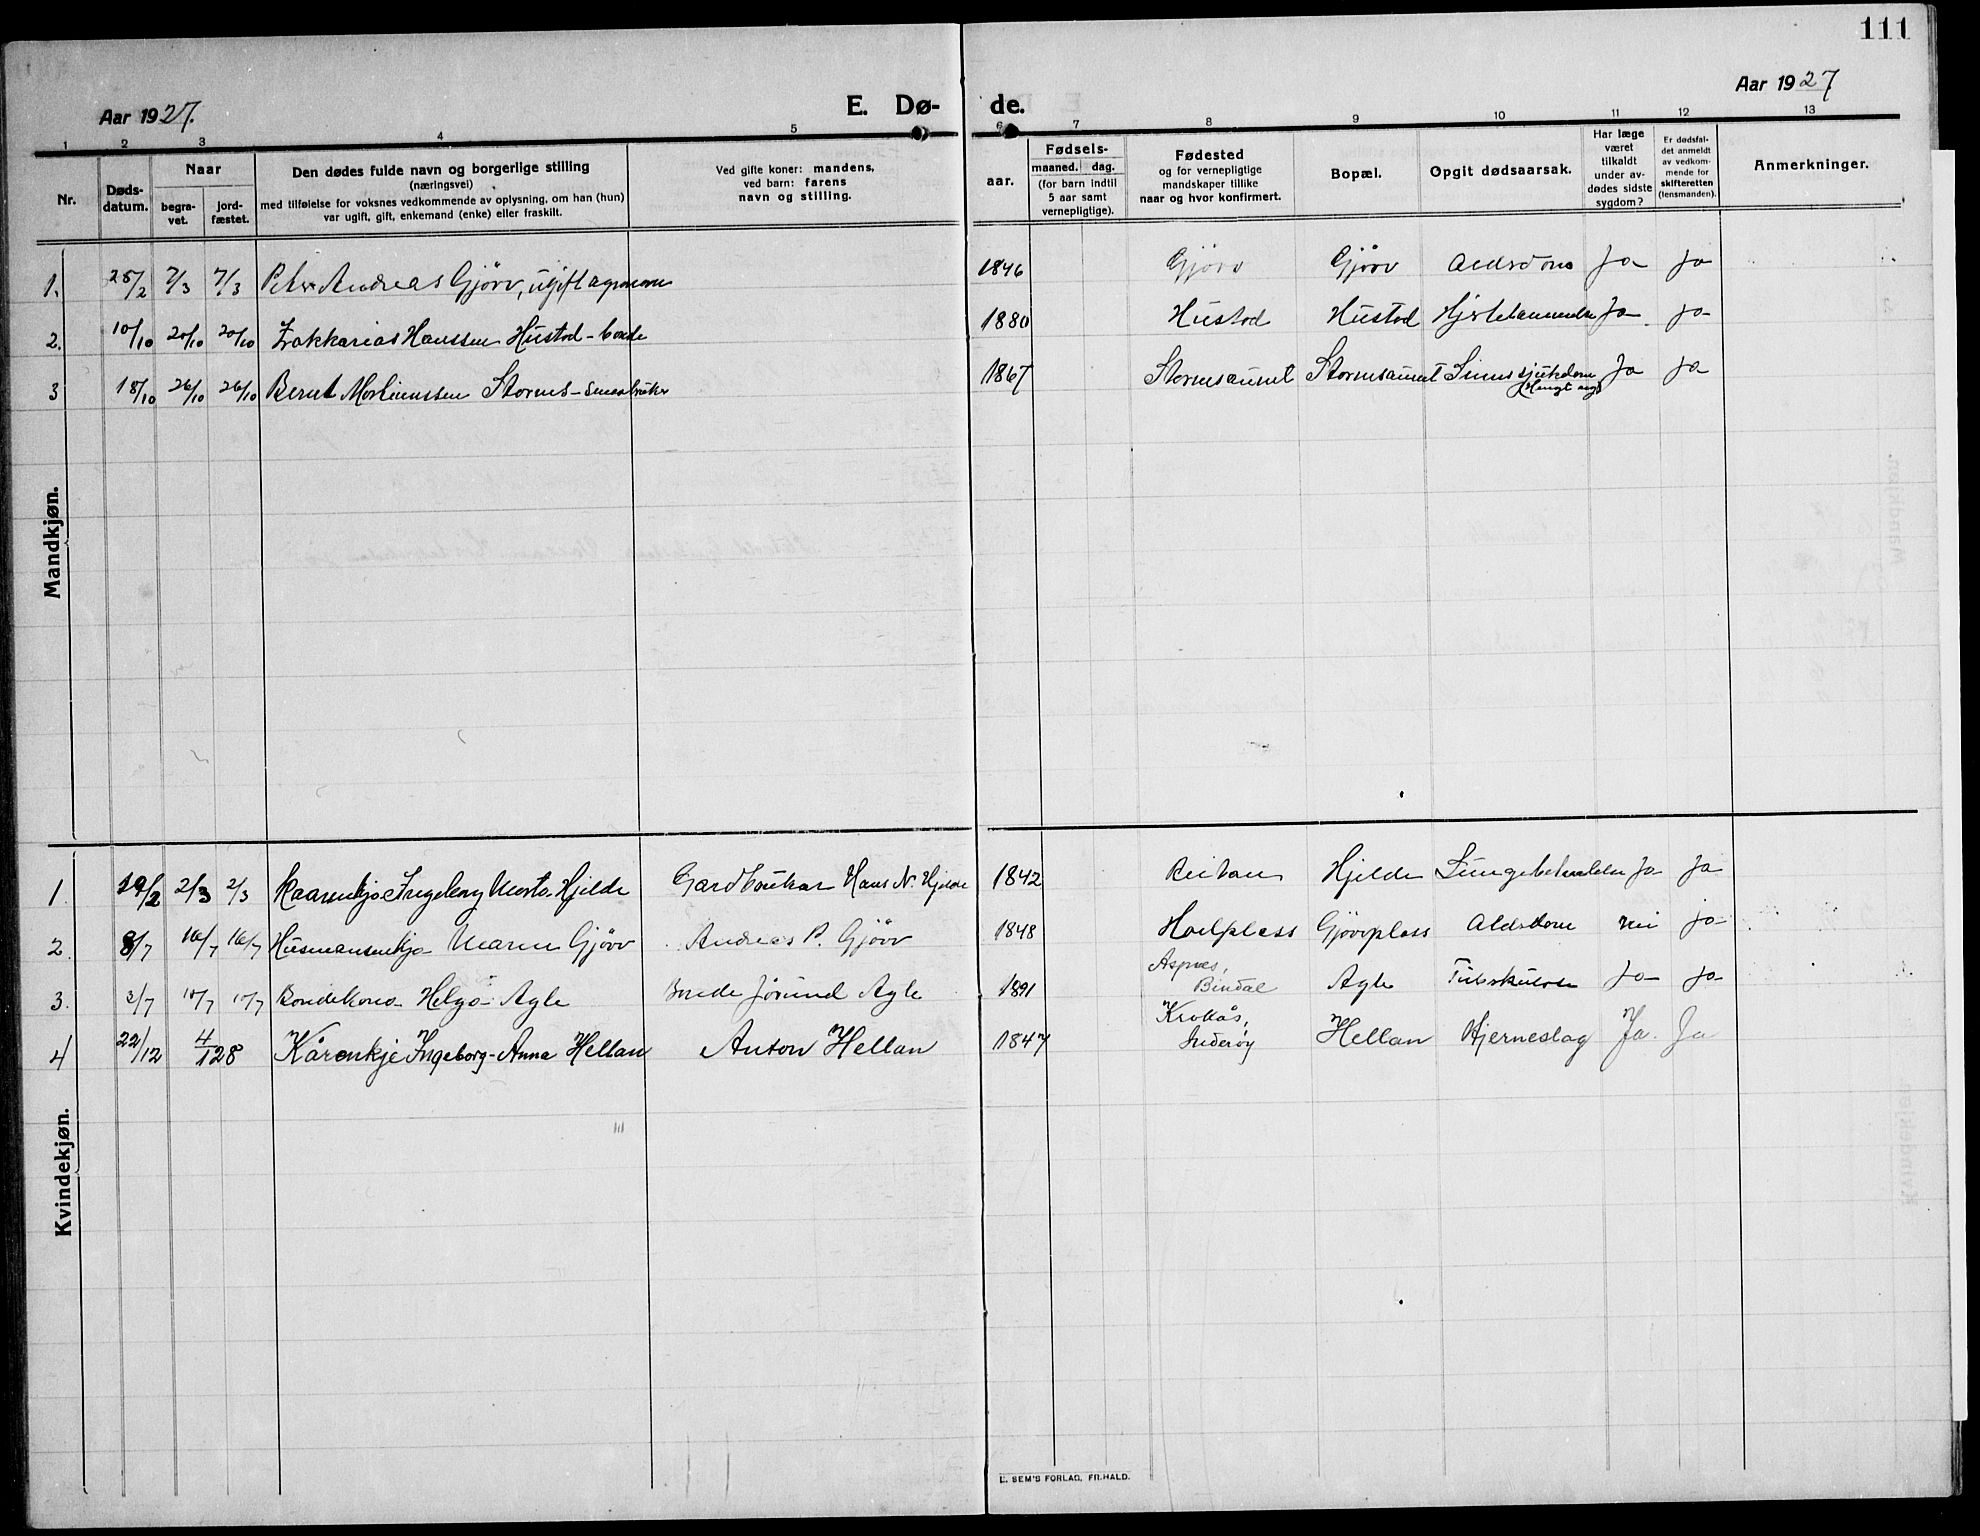 111
Aar 1927.
E. Dø-
de.
Aar 1927
1 2 3 4 5 6 7 8 9 10 11 12 13
Nr.
Døds-
datum.
Naar
begra-
vet.
jord-
fæstet.
Den dødes fulde navn og borgerlige stilling
(næringsvei)
med tilføielse for voksnes vedkommende av oplysning, om han (hun)
var ugift, gift, enkemand (enke) eller fraskilt.
Ved gifte koner: mandens,
ved barn: farens
navn og stilling.
Fødsels-
aar.
maaned. dag.
(for barn indtil
5 aar samt
vernepligtige).
Fødested
og for vernepligtige
mandskaper tillike
naar og hvor konfirmert.
Bopæl.
Opgit dødsaarsak.
Har læge
været
tilkaldt
under av-
dødes sidste
sygdom?
Er dødsfal-
det anmeldt
av vedkom-
mende for
skifteretten
(lensmanden).
Anmerkninger.
Mandkjøn.
1. 28/2 7/3 7/3 Peter Andreas Gjörv, ugift agronom 1846 Gjörv Gjörv Aldsdom Ja Ja
2. 10/10 20/10 20/10 Zakkarias Hanssen Hustad - bonde 1880 Hustad Hustad Ja Ja
3 18/10 26/10 26/10 Bernt Mortinussen Storms - smaabruker 1867 Stormsaunet Stormsaunet Sinnssjukdom Ja Ja
(Hengt seg)
Kvindekjøn.
1. 19/2 2/3 2/3 Kaarenkje Ingeborg Hjelde Gardbrukar Hans N. Hjelde 1842 Reitan Hjelde Lungebetendelse Ja Ja
2. 8/7 16/7 16/7 Maren Gjörv Andreas P. Gjörv 1848 Gjörvplass Aldsdom nei Ja
3. 2/7 10/7 10/7 Bondekona Helga Agle Bonde Jörund Agle 1891 Aspnes,
Bindal Agle Ja Ja
4 22/12 4/1 28 Kårenkje Ingeborg-Anna Hellan Anton Hellan 1847 Krokås,
Inderöy Hellan Hjerneslag Ja. Ja
E. SEM'S FORLAG, FR.HALD.